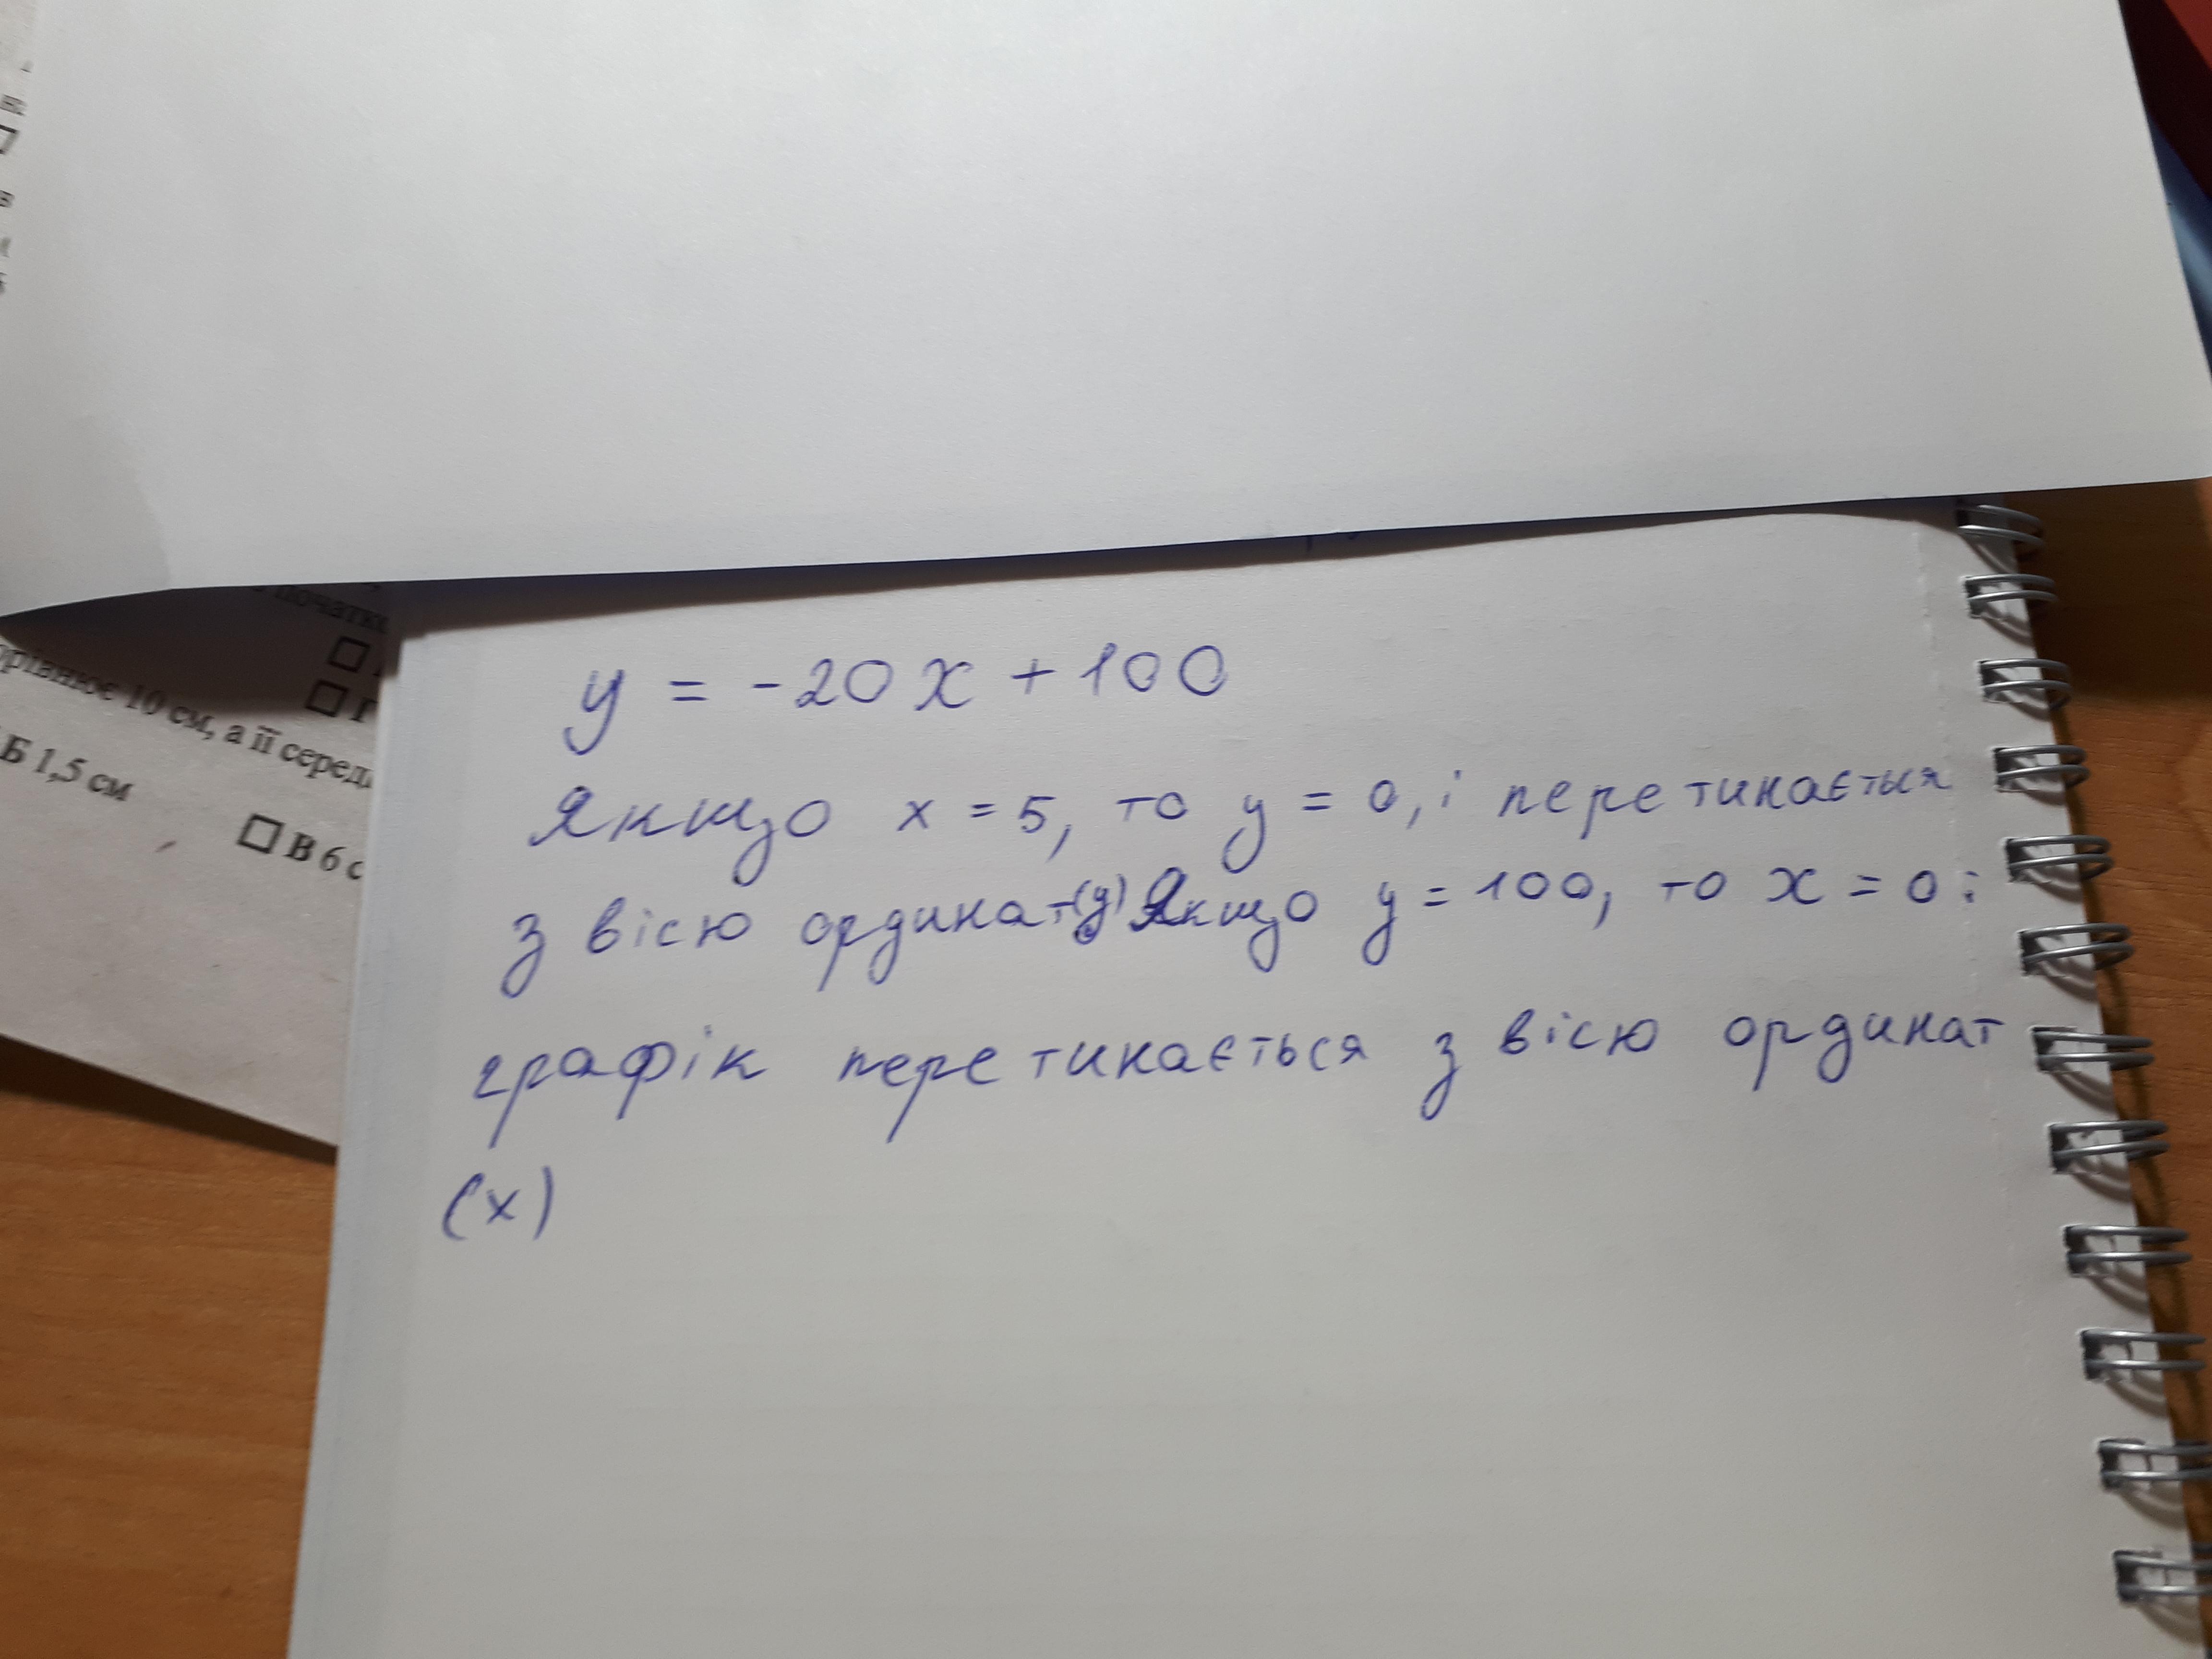 початк
орівнює 10 см, а її серед
Б 1,5 см
В 6 с
Г
y = -20x + 100
Якщо x = 5, то y = 0, і перетинається
з вісю ординат (y) Якщо y = 100, то x = 0 і
графік перетинається з вісю ординат
(x)